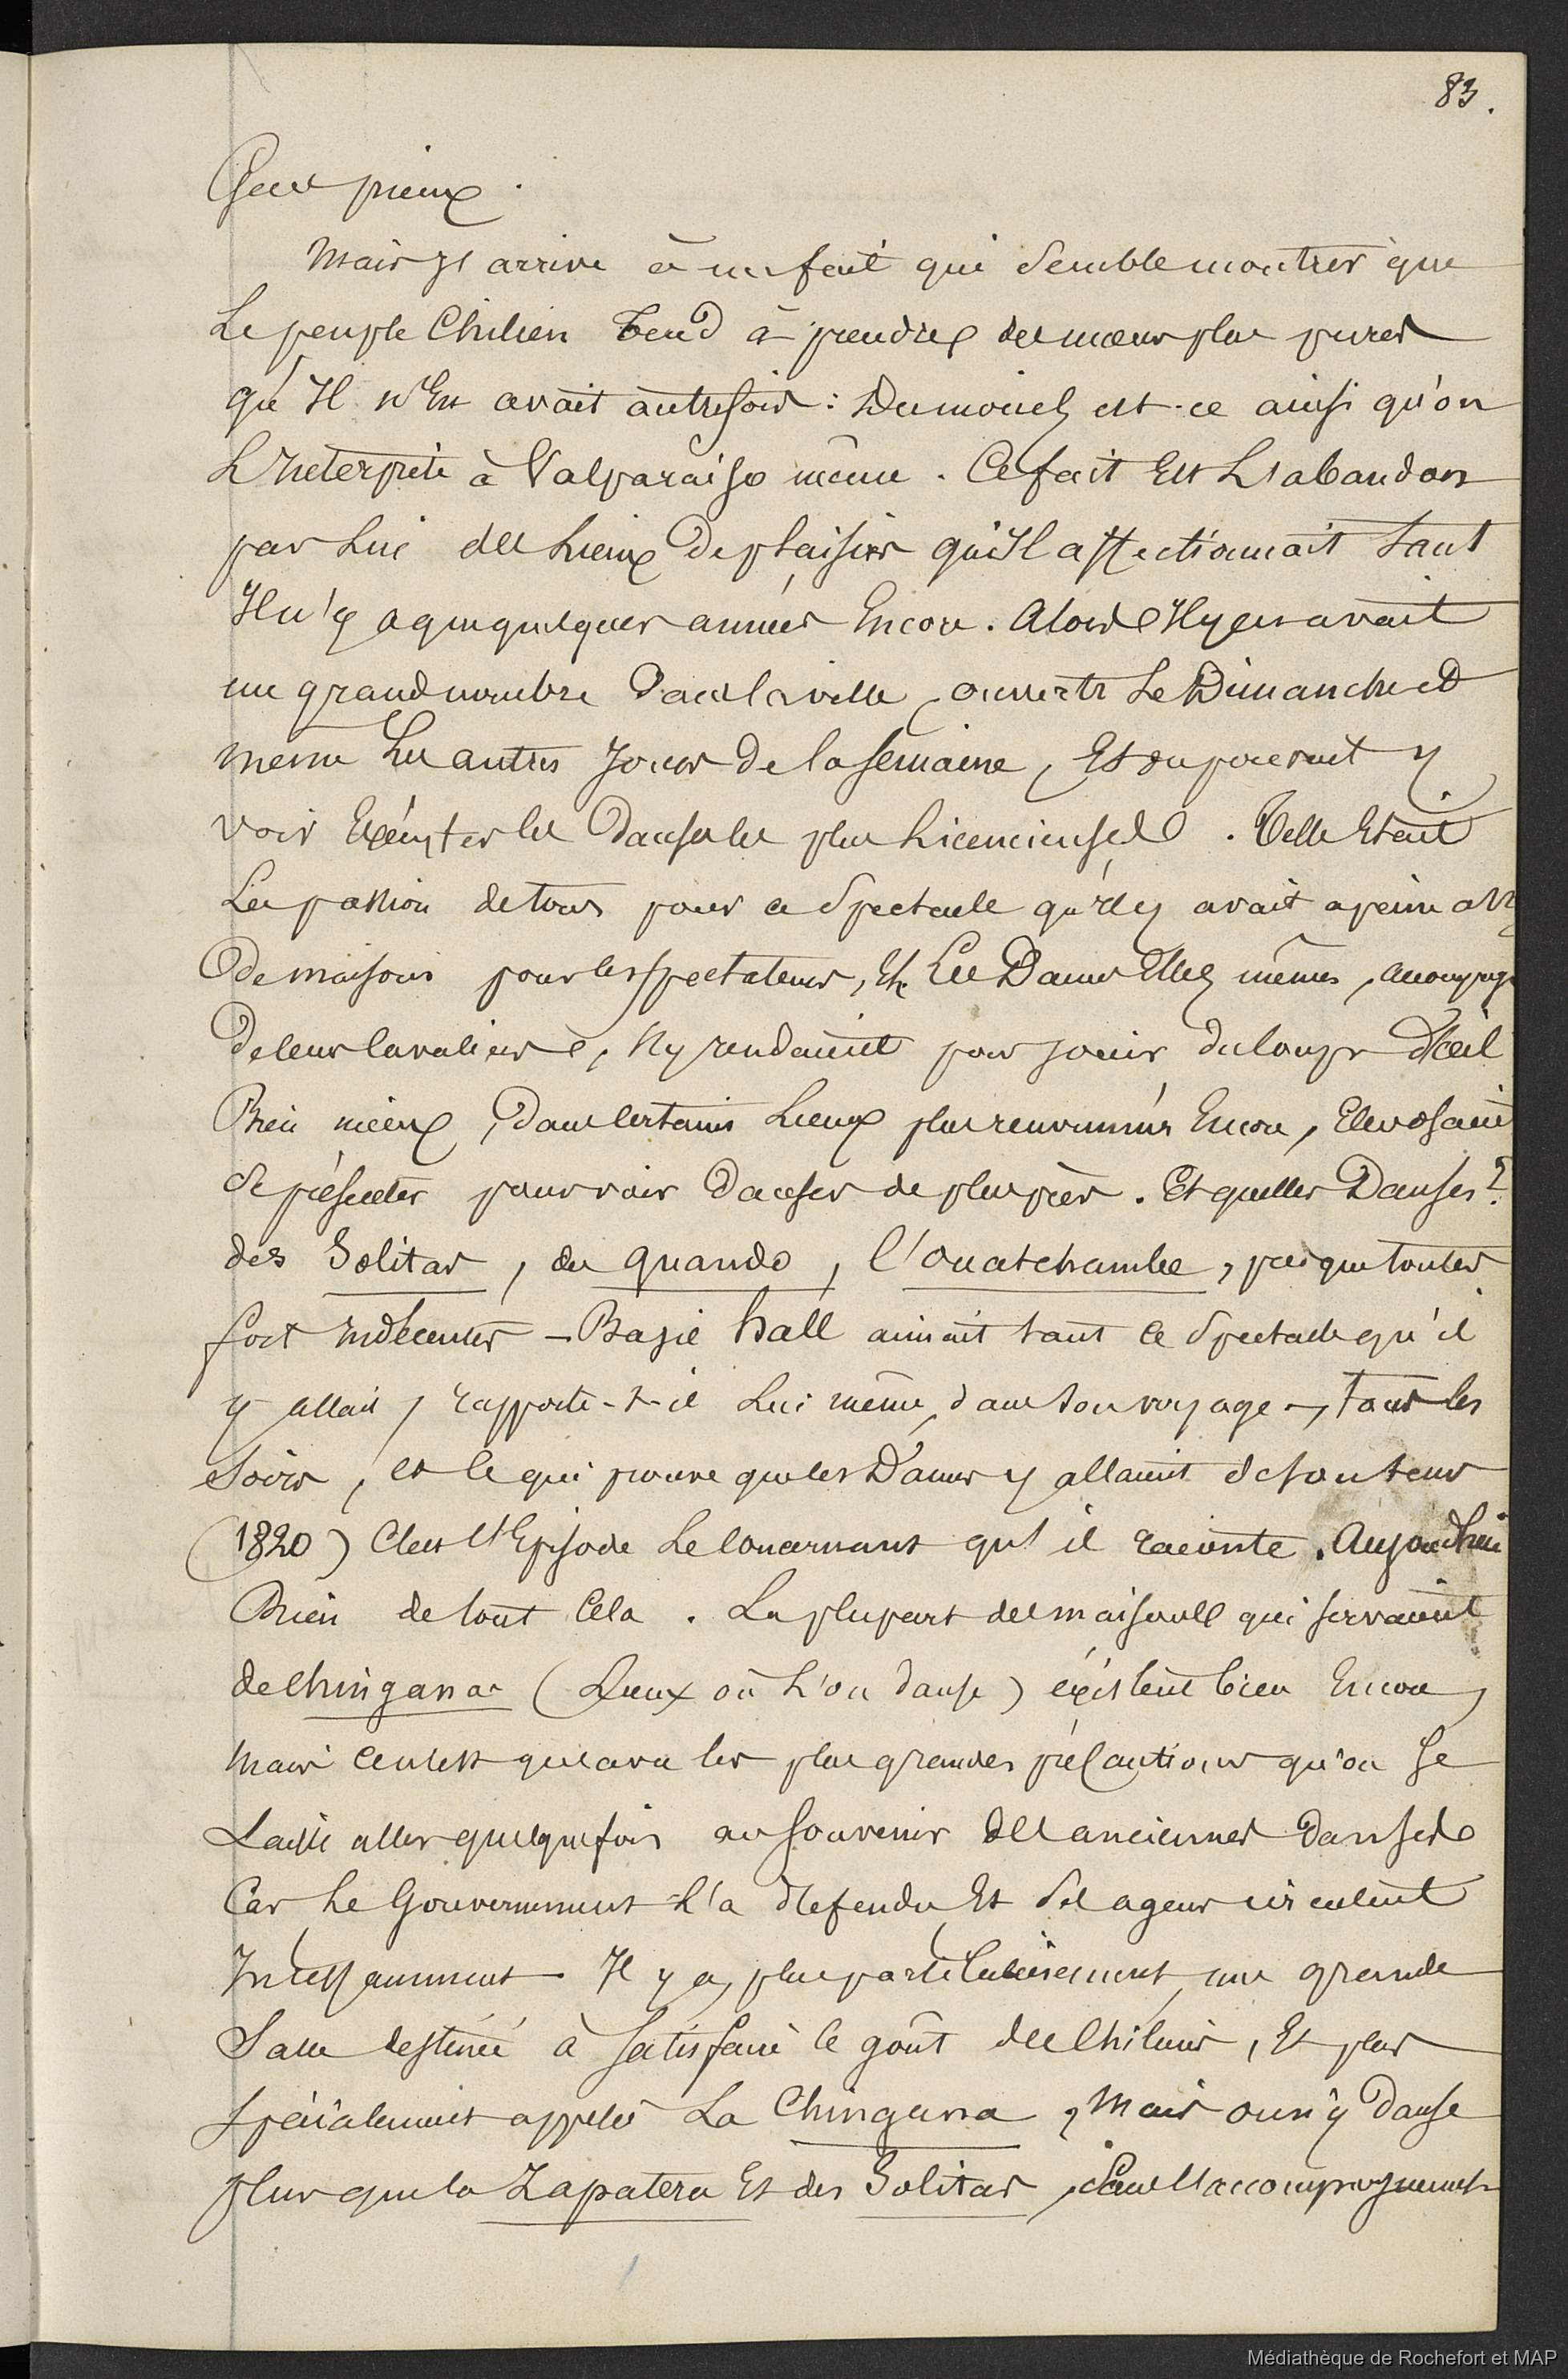 83.
pieux.
Mais j'arrive à un fait qui semble montrer que
Le peuple Chilien tend à prendre des mœurs plus pures
qu'Il n'En avait autrefois : Du moins est-ce ainsi qu'on
L'Interprète à Valparaiso même. Ce fait Est L'abandon
par Lui des Lieux de plaisirs qu'Il affectionnait tant
Il n'y a que quelques années Encore. Alors Il y en avait
un grand nombre dans la ville, ouverts Le Dimanche et
même Les autres Jours de la semaine, Et on pouvait y
voir Exécuter les Danses les plus Licencieuses. Telle Etait
La passion de tous pour ce Spectacle qu'il y avait a peine assez
de maisons pour les spectateurs, Et Les Dames Elles mêmes, accompag
de leurs Cavaliers, s'y rendaient pour jouir du coup d'œil
Bien mieux, Dans Certains Lieux plus renommés Encore, Elles osaient
se présenter pour voir danser de plus près. Et quelles Danses ?
des Solitas, du quando, l'ouatchambe, presque toutes
fort Indécentes - Basie hall aimait tant ce Spectacle qu'il
y allait, rapporte-t-il Lui même, dans son voyage, tous les
Soirs, et ce qui prouve que les Dames y allaient de son tems
(1820) C'est l'Episode Le concernant qu'il raconte. Aujourd'hui
Rien de tout Cela. La plupart des maisons qui servaient
de Chinganas (Lieux où L'on danse) existent bien Encore,
Mais Ce n'est qu'avec les plus grandes précautions qu'on se
Laisse aller quelquefois au souvenir des anciennes Danses
Car Le Gouvernement L'a défendu Et des agens circulent
Incessamment. Il y a, plus particulièrement, une grande
Salle destinée à satisfaire le goût des Chiliens, Et plus
spécialement appelée La Chingana, Mais on n'y Danse
plus que la Zapatera Et des Solitas, Sans l'accompagnement
Médiathèque de Rochefort et MAP